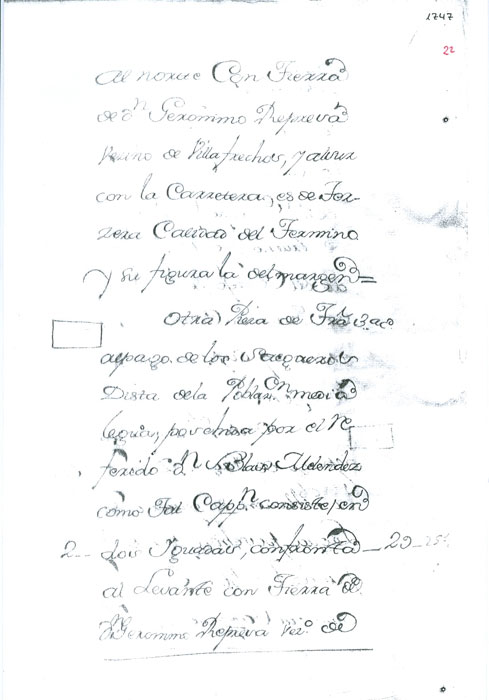 1747
22
al norte Con Tierra
de Dn Geronimo Represa
vecino de Villafrechos, y al sur
con la Carretera, es de Ter-
zera Calidad del Termino
y su figura la del margen =
Otra) Pieza de Trra
al pago de los
Dista de la Poblazon media
legua, poco mas por el Re
ferido Dn Blas Melendez
como tal Cappn consiste, en
2 -- dos Yguadas, confronta -- 29
al Levante con Tierra de
Dn Geronimo Represa vezo. de